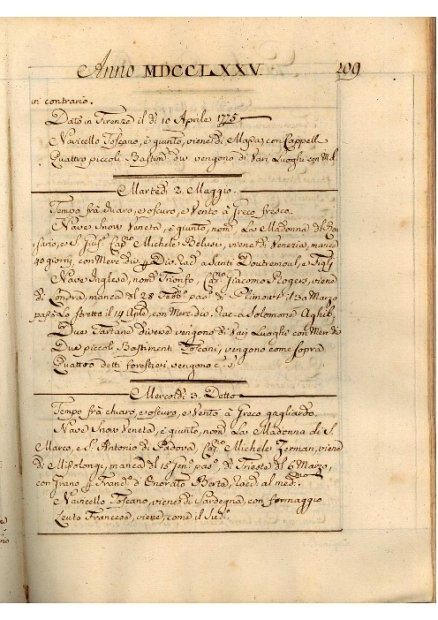 Anno MDCCLXXV. 209
in contrario.
Dato in Firenze il dì 10 Aprile 1775
Navicello Toscano, è giunto, viene di con Cappelli
Quattro piccoli Bastim.ti div. vengono di Vari Luoghi con
Martedì 2. Maggio.
Tempo frà chiaro, e oscuro, e Vento à Greco fresco.
Nave Snow Veneta, è giunto, nom.a La Madonna del Ro
sario, e S. Cap.o Michele viene di Venezia, manca
40 giorni, con Merc. div.
Nave Inglesa, nom.a Trionfo, Cap.o Giacomo Rogers, viene
di Londra, manca dal 28 Feb.o pas.o di Plimouth il 30 Marzo
passò lo stretto il 14 Aple, con Merc. div. Rac. à Salomone Aghib
Due Tartane diverse vengono di Vari Luoghi con Merc. div
Due piccoli Bastimenti Toscani, vengono come sopra
Quattro detti forestieri, vengono
Mercoldì 3. Detto
Tempo frà chiaro, e oscuro, e Vento à Greco gagliardo.
Nave Snow Veneta, è giunto, nom.a La Madonna di S.
Marco, e S. Antonio di Padova Cap.o Michele Zerman, viene
di Missolongi, manca dal 15 Jen.o pas.o, di Trieste dal 6 Marzo,
con Grano p Franc.a d'Onorato Berte, Racd. al med.o.
Navicello Toscano, viene di Sardegna, con formaggio
Leuto Francese, viene, come il Sud.o